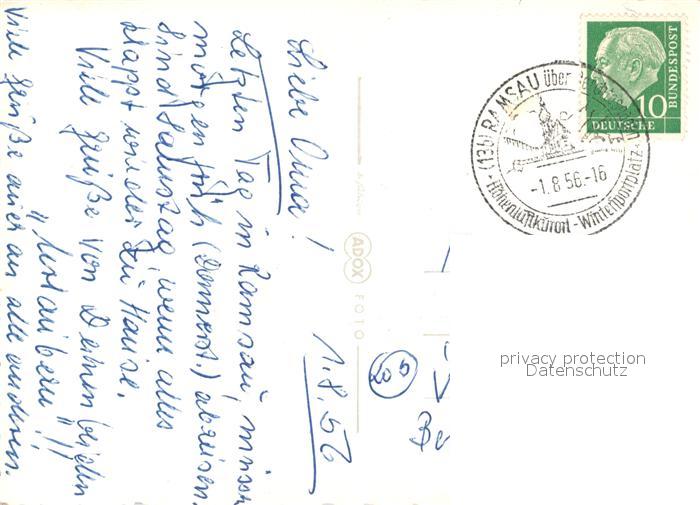 Liebe Oma!
1.8.56
Letzten Tag in Ramsau, müssen
morgen früh (Donnerst.) abreisen.
Sind Samstag, wenn alles
klappt wieder zu Hause.
Viele Grüße von Deinen beiden
"Urlaubern"!!
Viele Grüße auch an alle anderen.
ADOX
FOTO
DEUTSCHE
BUNDESPOST
10
(13b) RAMSAU über Berchtesgaden
-1.8.56.-16
-Höhenluftkurort - Wintersportplatz-
205
privacy protection
Datenschutz